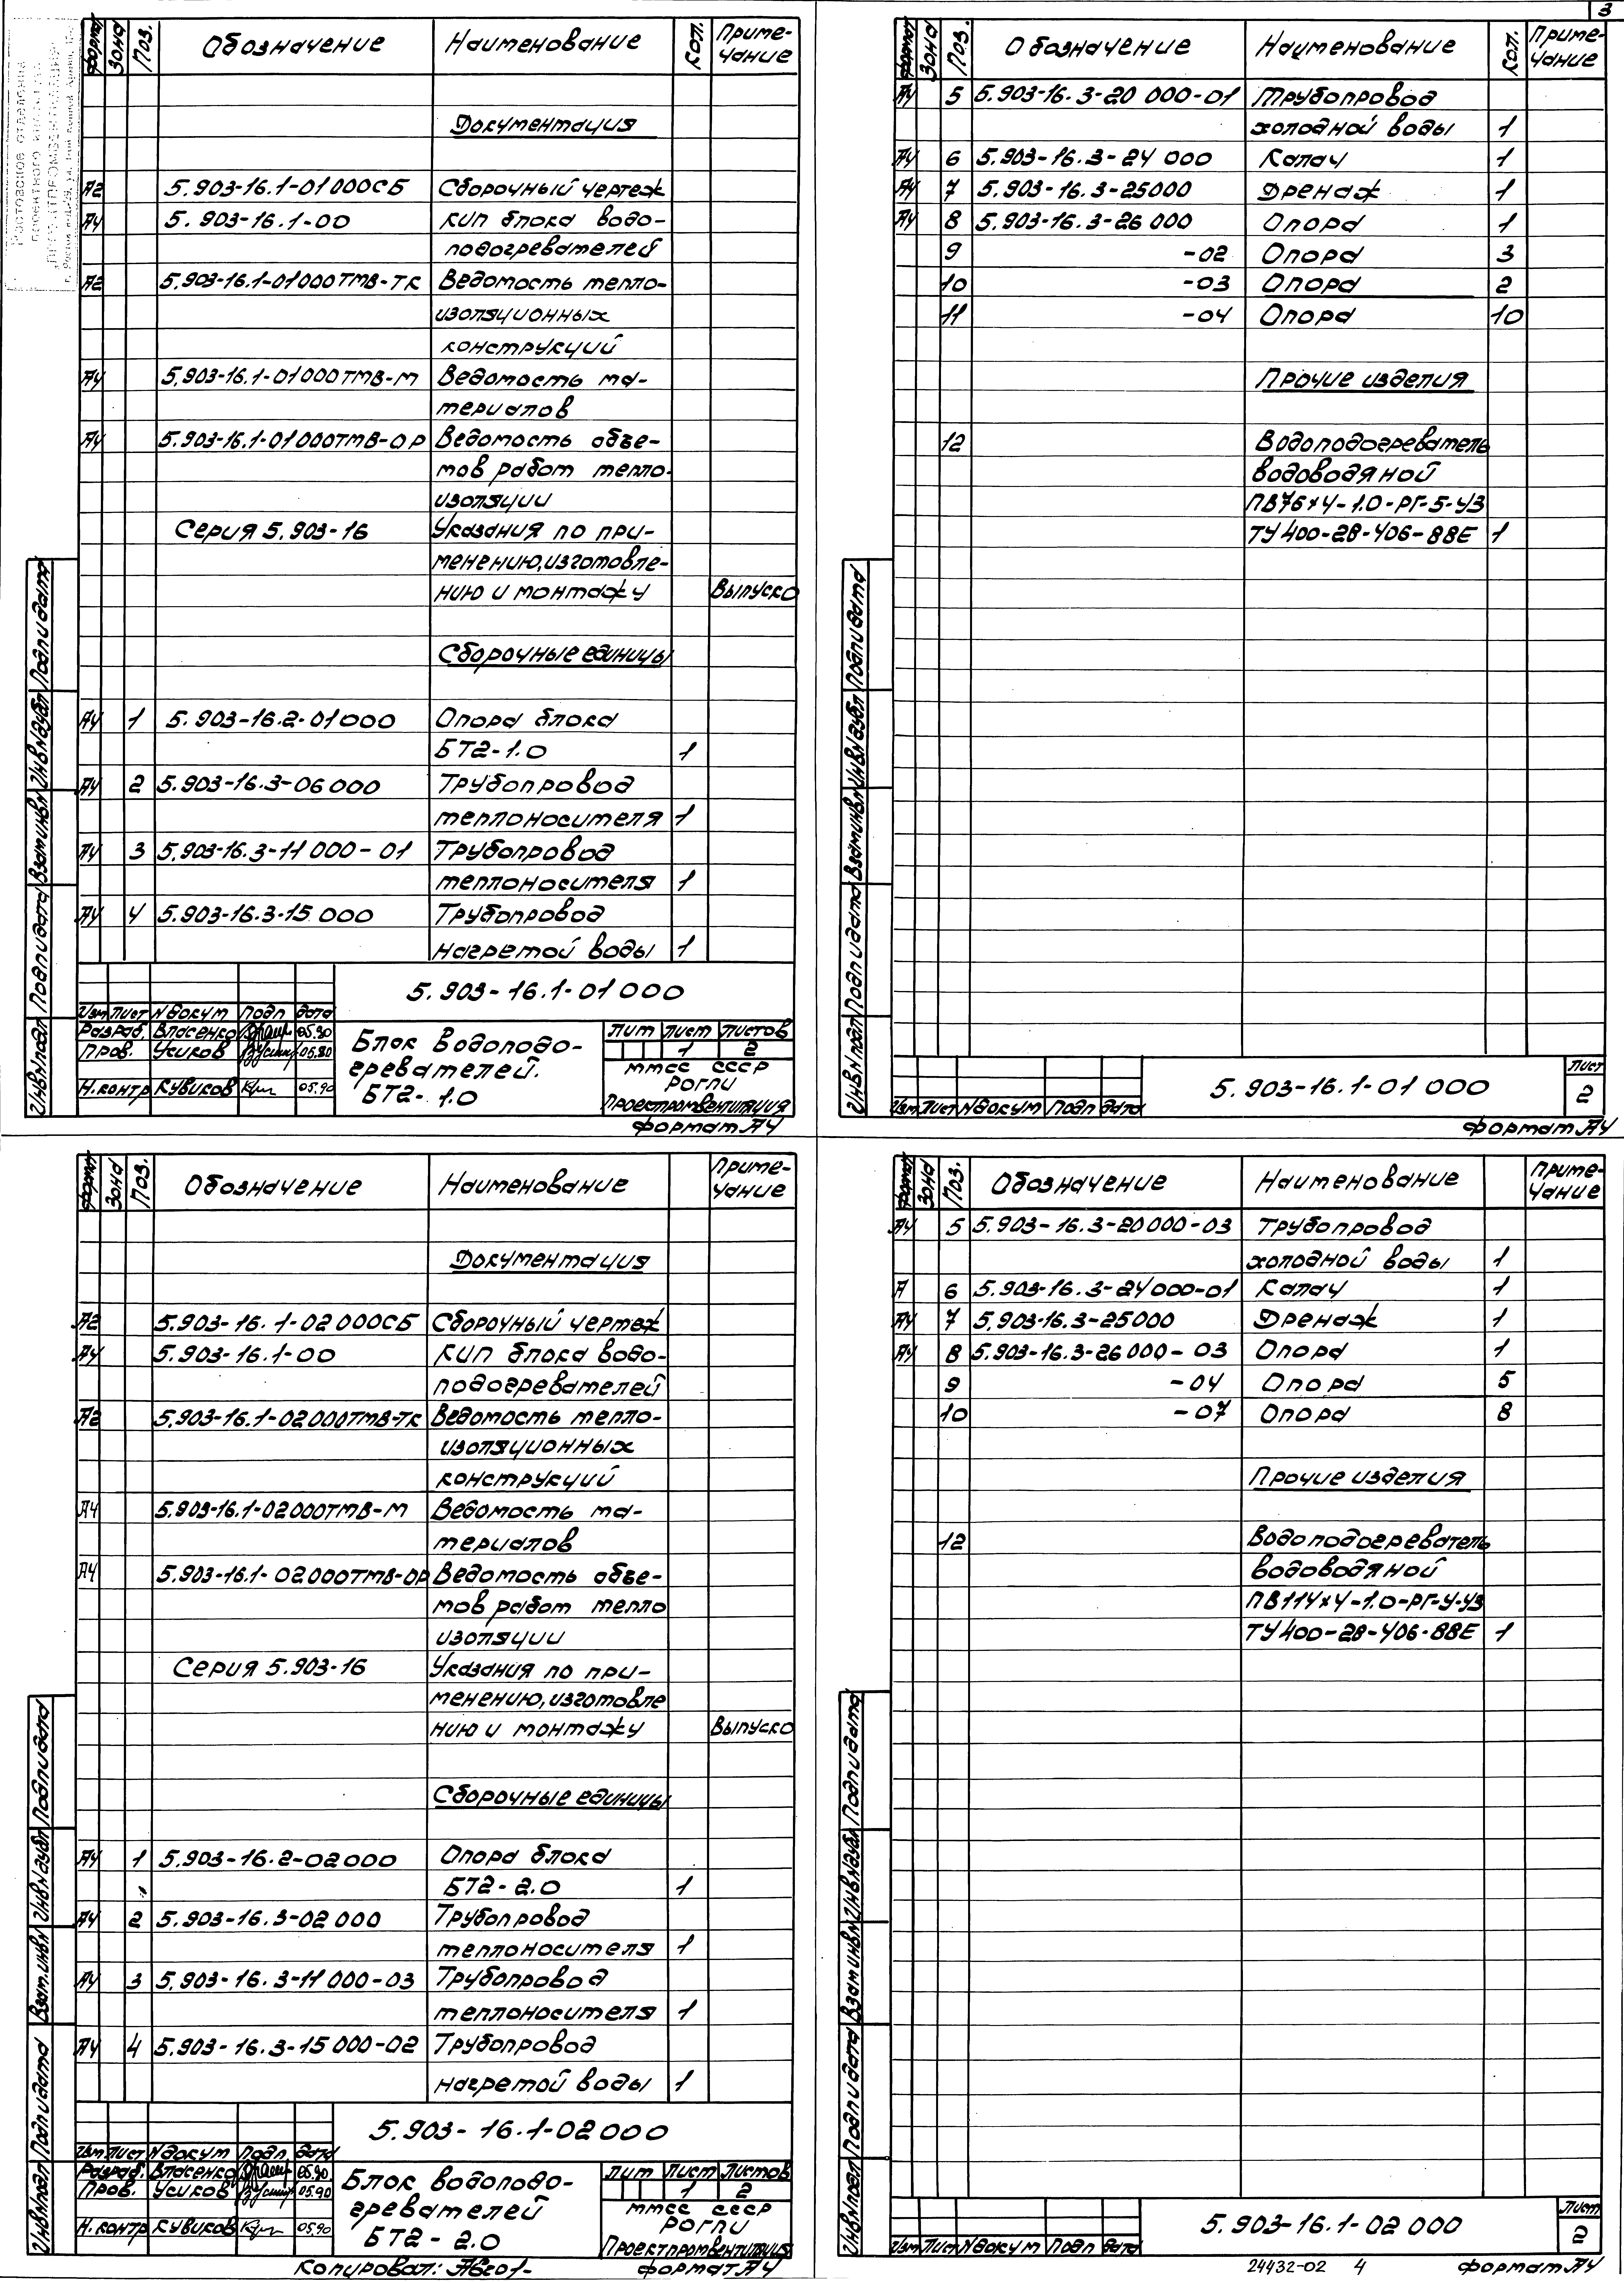 3
Формат Зона Поз. Обозначение Наименование Кол. Приме-
чание
Документация
А2 5.903-16.1-01000СБ Сборочный чертеж
А4 5.903-16.1-00 КИП блока водо-
подогревателей
А2 5.903-16.1-01000ТМВ-ТК Ведомость тепло-
изоляционных
конструкций
А4 5.903-16.1-01000ТМВ-М Ведомость ма-
териалов
А4 5.903-16.1-01000ТМВ-ОР Ведомость объе-
мов работ тепло-
изоляции
Серия 5.903-16 Указания по при-
менению,изготовле-
нию и монтажу Выпуск0
Сборочные единицы
А4 1 5.903-16.2-01000 Опора блока
БТ2-1.0 1
А4 2 5.903-16.3-06000 Трубопровод
теплоносителя 1
А4 3 5.903-16.3-11000-01 Трубопровод
теплоносителя 1
А4 4 5.903-16.3-15000 Трубопровод
нагретой воды 1
5.903-16.1-01000
Изм Лист N докум Подп Дата
Разраб. Власенко 05.90
Пров. Усиков 05.90
Н.контр Кувиков 05.90
Блок водоподо-
гревателей.
БТ2-1.0
Лит Лист Листов
1 2
ММСС СССР
РОГПИ
Проектпромвентиляция
Формат А4
Инв N подл Подп и дата Взам инв N Инв N дубл Подп и дата
Формат Зона Поз. Обозначение Наименование Кол. Приме-
чание
А4 5 5.903-16.3-20000-01 Трубопровод
холодной воды 1
А4 6 5.903-16.3-24000 Калач 1
А4 7 5.903-16.3-25000 Дренаж 1
А4 8 5.903-16.3-26000 Опора 1
9 -02 Опора 3
10 -03 Опора 2
11 -04 Опора 10
Прочие изделия
12 Водоподогреватель
водоводяной
ПВ76х4-1.0-РГ-5-У3
ТУ 400-28-406-88Е 1
Изм Лист N докум Подп Дата
5.903-16.1-01000
Лист
2
Формат А4
Инв N подл Подп и дата Взам инв N Инв N дубл Подп и дата
Формат Зона Поз. Обозначение Наименование Приме-
чание
Документация
А2 5.903-16.1-02000СБ Сборочный чертеж
А4 5.903-16.1-00 КИП блока водо-
подогревателей
А2 5.903-16.1-02000ТМВ-ТК Ведомость тепло-
изоляционных
конструкций
А4 5.903-16.1-02000ТМВ-М Ведомость ма-
териалов
А4 5.903-16.1-02000ТМВ-ОР Ведомость объе-
мов работ тепло
изоляции
Серия 5.903-16 Указания по при-
менению,изготовле
нию и монтажу Выпуск0
Сборочные единицы
А4 1 5.903-16.2-02000 Опора блока
БТ2-2.0 1
А4 2 5.903-16.3-02000 Трубопровод
теплоносителя 1
А4 3 5.903-16.3-11000-03 Трубопровод
теплоносителя 1
А4 4 5.903-16.3-15000-02 Трубопровод
нагретой воды 1
5.903-16.1-02000
Изм Лист N докум Подп Дата
Разраб. Власенко 05.90
Пров. Усиков 05.90
Н.контр Кувиков 05.90
Блок водоподо-
гревателей
БТ2-2.0
Лит Лист Листов
1 2
ММСС СССР
РОГПИ
Проектпромвентиляция
Копировал:
Формат А4
Инв N подл Подп и дата Взам.инв N Инв N дубл Подп и дата
Формат Зона Поз. Обозначение Наименование Приме-
чание
А4 5 5.903-16.3-20000-03 Трубопровод
холодной воды 1
А 6 5.903-16.3-24000-01 Калач 1
А4 7 5.903-16.3-25000 Дренаж 1
А4 8 5.903-16.3-26000-03 Опора 1
9 -04 Опора 5
10 -07 Опора 8
Прочие изделия
12 Водоподогреватель
водоводяной
ПВ114х4-1.0-РГ-4-У3
ТУ 400-28-406-88Е 1
Изм Лист N докум Подп Дата
5.903-16.1-02000
Лист
2
24432-02 4
Формат А4
Инв N подл Подп и дата Взам инв N Инв N дубл Подп и дата